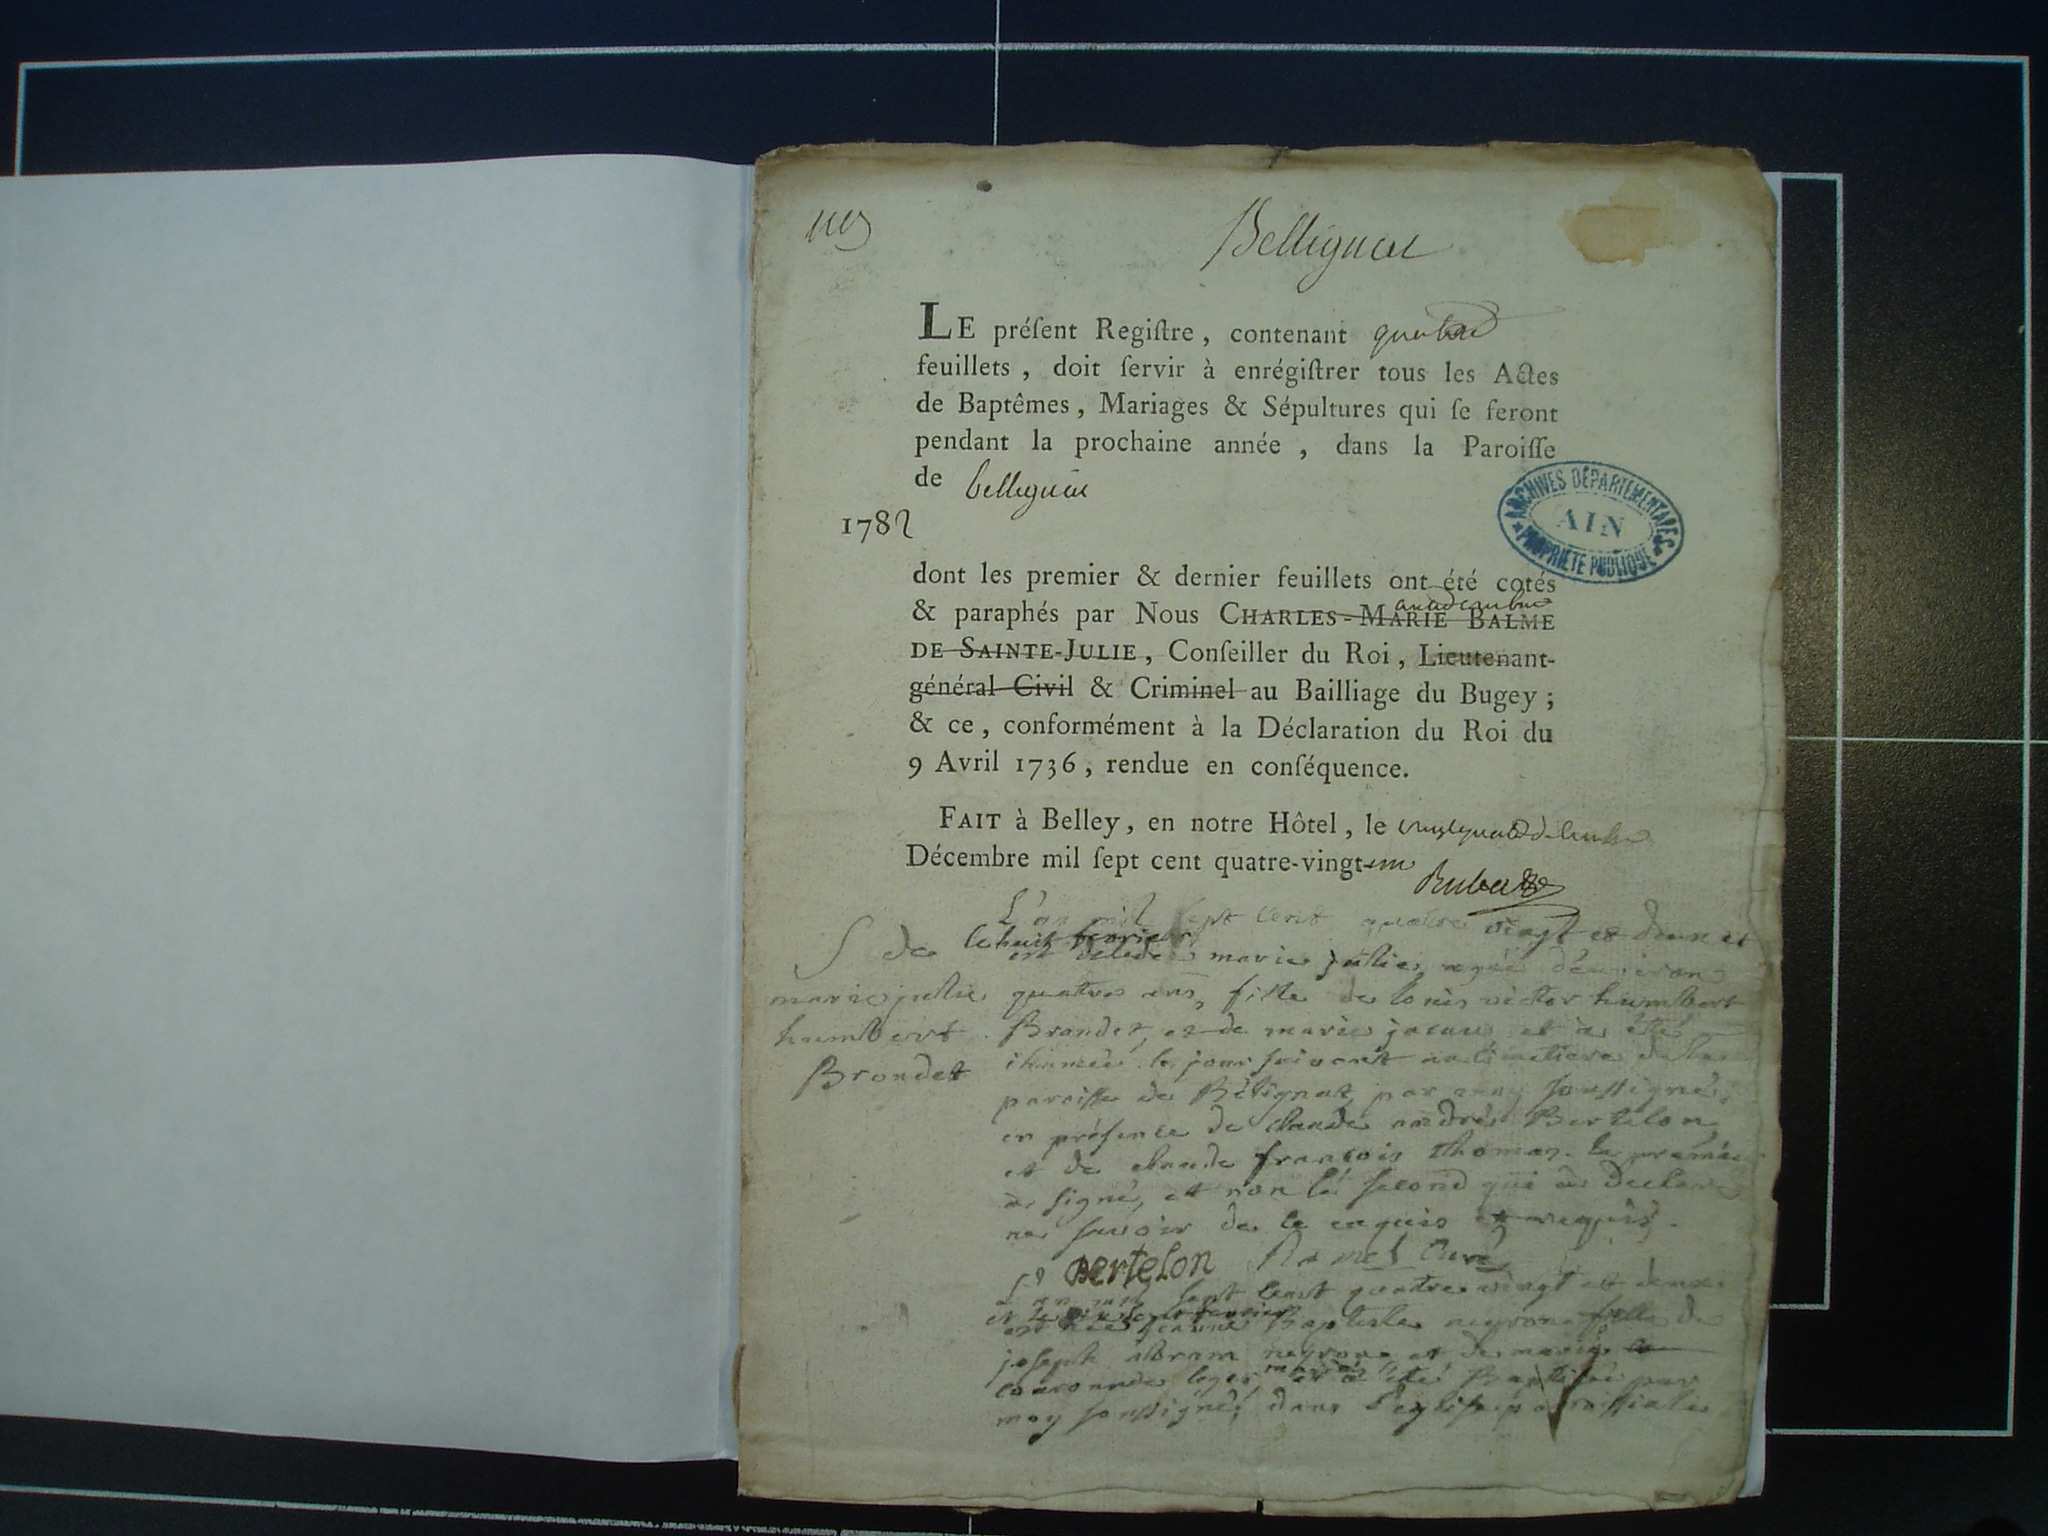 Bellignat
LE préſent Regiſtre, contenant quatre
feuillets, doit ſervir à enrégiſtrer tous les Actes
de Baptêmes, Mariages & Sépultures qui ſe feront
pendant la prochaine année, dans la Paroiſſe
de bellignat
1782
ARCHIVES DÉPARTEMENTALES
AIN
PROPRIÉTÉ PUBLIQUE
dont les premier & dernier feuillets ont été cotés
& paraphés par Nous CHARLES-MARIE BALME
DE SAINTE-JULIE, Conſeiller du Roi, Lieutenant-
général Civil & Criminel au Bailliage du Bugey;
& ce, conformément à la Déclaration du Roi du
9 Avril 1736, rendue en conſéquence.
FAIT à Belley, en notre Hôtel, le
Décembre mil ſept cent quatre-vingt-un
L'an mil sept cent quatre vingt et deux et
le huit fevrier
est decedée marie julie agée d'environ
S de
marie julie
humbert
Brondet
quatres ans, fille de louis victor humbert
Brondet, et de marie et a été
ihumée le jour suivant au cimetiere de la
paroisse de Bélignat, par moy soussigné,
en présence de claude andré Bertelon
et de claude françois thomas. le premier
a signé, et non le second qui a declaré
ne savoir de ce enquis et requis.
Bertelon Curé
L'an mil sept cent quatre vingt et deux
et le dix sept fevrier
est née jeanne Baptiste negron fille de
joseph abram negron et de marie
mariés et a été Baptisée par
moy soussigné, dans l'eglise paroissiale